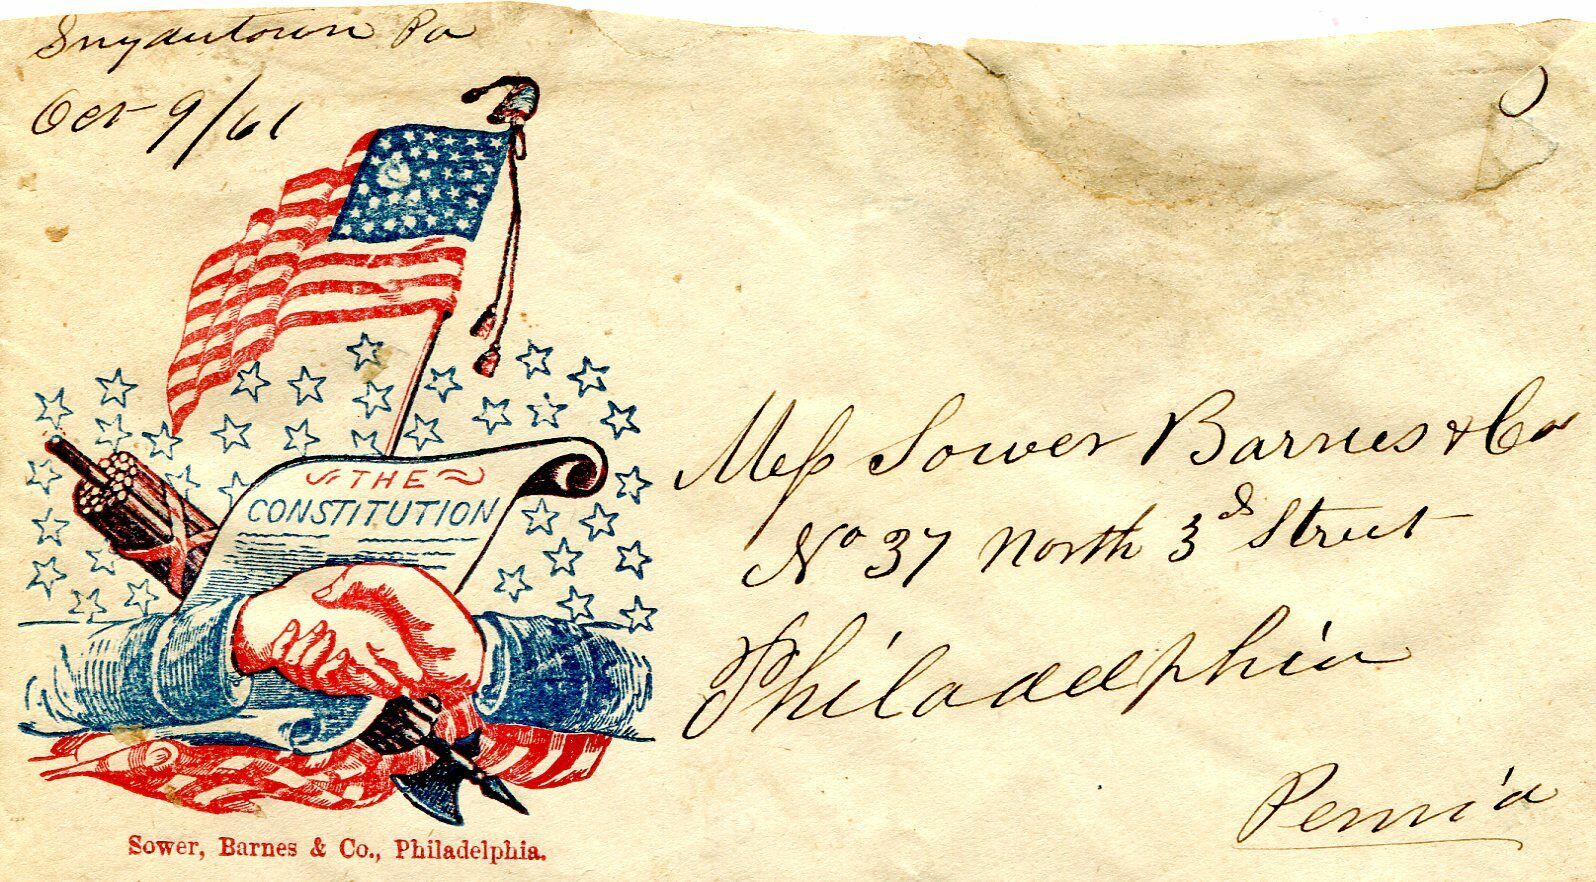 Snydertown Pa
Oct 9/61
THE
CONSTITUTION
Mess Sower Barnes & Co
No 37 North 3d Street
Philadelphia
Penn'a
Sower, Barnes & Co., Philadelphia.